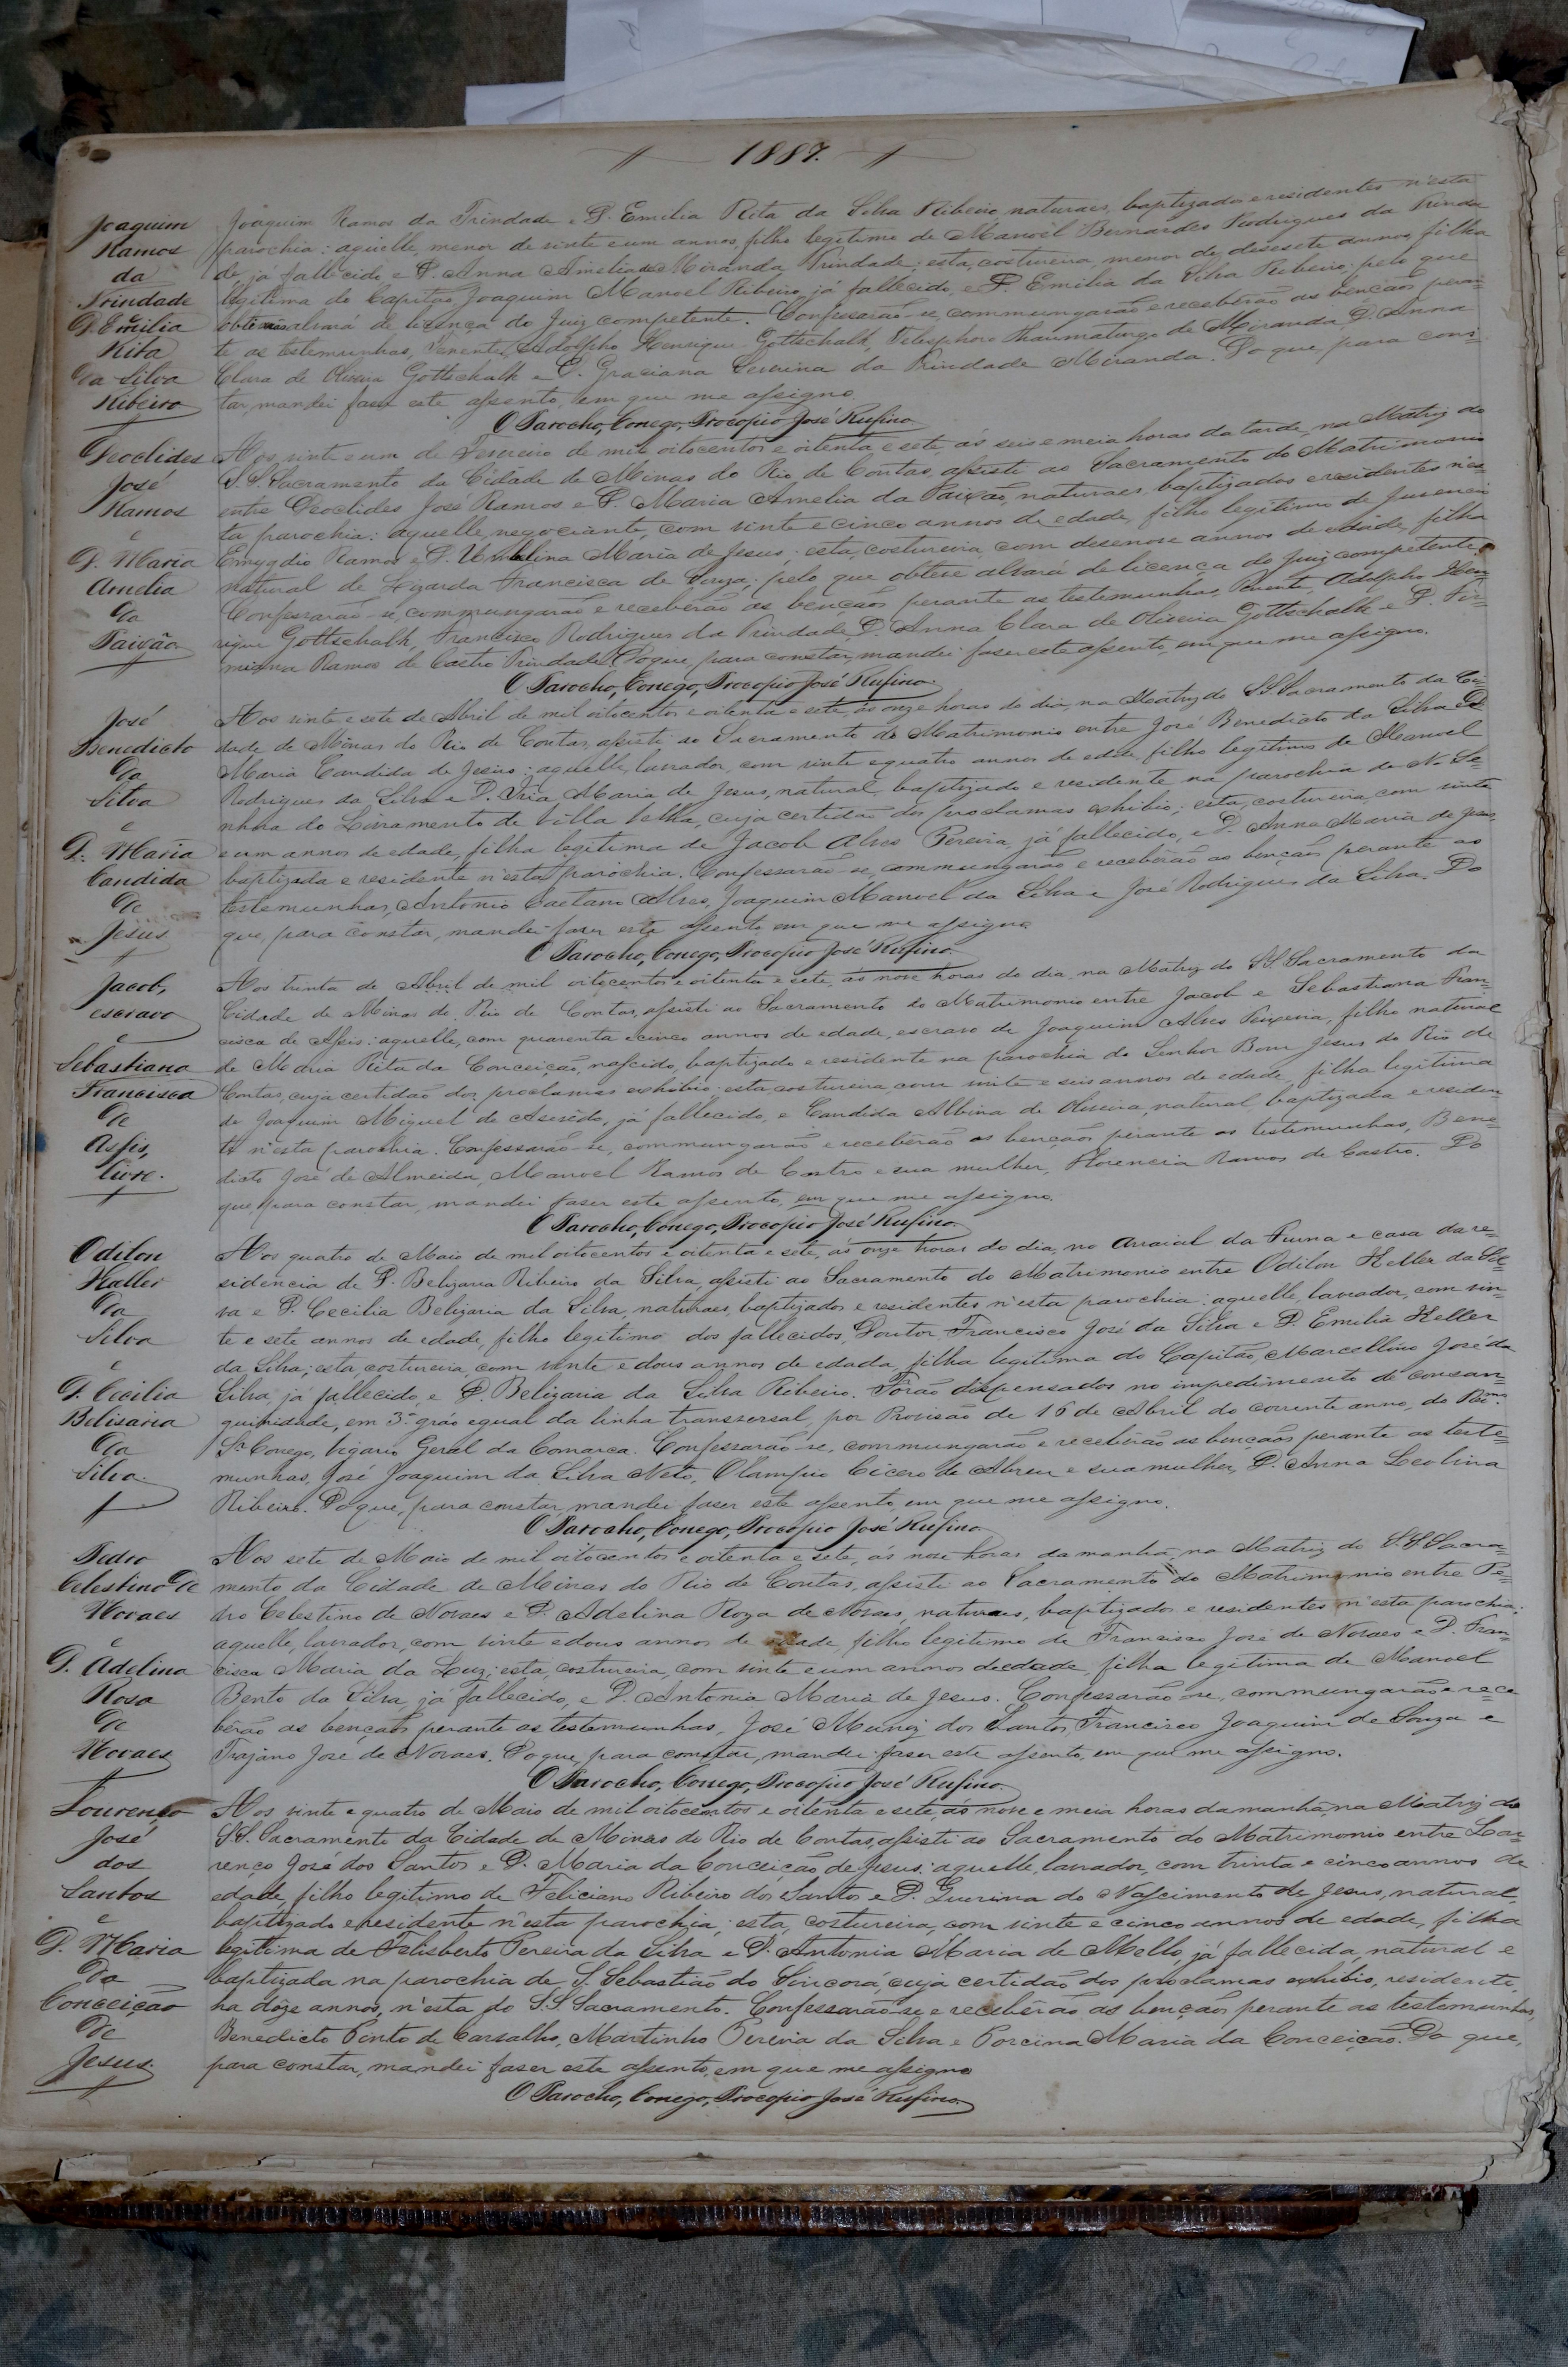 1887.
Joaquim
Ramos
da
Trindade
e
D. Emilia
Rita
da Silva
Ribeiro
Joaquim Ramos da Trindade e D. Emilia Rita da Silva Ribeiro, naturaes, baptizados e residentes n'esta
parochia: aquelle, menor de vinte e um annos, filho legitimo de Manoel Bernardes Rodrigues da Trinda
de, já fallecido e D. Anna Amelia de Miranda Trindade; esta, costureira, menor de desesete annos, filha
legitima do Capitão, Joaquim Manoel Ribeiro, já fallecido, e D. Emilia da Silva Ribeiro; pelo que
alvará de licença do Juiz competente. Confessarão-se, commungarão e receberão as bençãos peran=
te as testemunhas, Tenente, Adolpho Henrique Gottschalk, Telesphoro Thaumaturgo de Miranda, D. Anna
Clara de Oliveira Gottschalk e D. Graciana Severina da Trindade Miranda. Do que para cons=
tar, mandei faser este assento, em que me assigno.
O Parocho, Conego, Procopio José Rufino.
Deoclides
José
Ramos
e
D. Maria
Amelia
da
Paixão
Aos vinte e um de Fevereiro de mil oitocentos e oitenta e sete, ás seis e meia horas da tarde, na Matriz do
S. S. Sacramento da Cidade de Minas do Rio de Contas, assisti ao Sacramento do Matrimonio
entre Deoclides José Ramos e D. Maria Amelia da Paixão, naturaes, baptizados e residentes n'es=
ta parochia: aquelle, negociante, com vinte e cinco annos de edade, filho legitimo de Juvencio
Emygdio Ramos e D. Umbelina Maria de Jesus; esta, costureira, com desenove annos de edade, filha
natural de Lizarda Francisca de Souza; pelo que obteve alvará de licença do Juiz competente.
Confessarão-se, commungarão e receberão as bençãos perante as testemunhas, Tenente, Adolpho Hen=
rique Gottschalk, Francisco Rodrigues da Trindade, D. Anna Clara de Oliveira Gottschalk e D. Fir=
miana Ramos de Castro Trindade. Do que, para constar, mandei faser este assento, em que me assigno.
O Parocho, Conego, Procopio José Rufino.
José
Benedicto
da
Silva
e
D. Maria
Candida
de
Jesus
Aos vinte e sete de Abril de mil oitocentos e oitenta e sete, ás onze horas do dia, na Matriz do S. S. Sacramento da Ci=
dade de Minas do Rio de Contas, assisti ao Sacramento do Matrimonio entre José Benedicto da Silva e D.
Maria Candida de Jesus: aquelle, lavrador, com vinte e quatro annos de edade, filho legitimo de Manoel
Rodrigues da Silva e D. Iria Maria de Jesus, natural, baptizado e residente na parochia de N. Se=
nhora do Livramento de Villa Velha, cuja certidão dos proclamas exhibio; esta, costureira, com vinte
e um annos de edade, filha legitima de Jacob Alves Pereira, já fallecido, e D. Anna Maria de Jesus,
baptizada e residente n'esta parochia. Confessarão-se, commungarão e receberão as bençãos perante as
testemunhas, Antonio Caetano Alves, Joaquim Manoel da Silva e José Rodrigues da Silva. Do
que, para constar, mandei faser este assento em que me assigno
O Parocho, Conego, Procopio José Rufino.
Jacob,
escravo
e
Sebastiana
Francisca
de
Assis,
livre.
Aos trinta de Abril de mil oitocentos e oitenta e sete, ás nove horas do dia, na Matriz do S. S. Sacramento da
Cidade de Minas do Rio de Contas, assisti ao Sacramento do Matrimonio entre Jacob e Sebastiana Fran=
cisca de Assis: aquelle, com quarenta e cinco annos de edade, escravo de Joaquim Alves Teixeira, filho natural
de Maria Rita da Conceição, nascido, baptizado e residente na parochia do Senhor Bom Jesus do Rio de
Contas, cuja certidão dos proclamas exhibio; esta, costureira, com vinte e seis annos de edade, filha legitima
de Joaquim Miguel de Asevêdo, já fallecido, e Candida Albina de Oliveira, natural, baptizada e residen=
te n'esta parochia. Confessarão-se, commungarão e receberão as bençãos perante as testemunhas, Bene=
dicto José de Almeida, Manoel Ramos de Castro e sua mulher, Florencia Ramos de Castro. Do
que, para constar, mandei faser este assento, em que me assigno.
O Parocho, Conego, Procopio José Rufino.
Odilon
Heller
da
Silva
e
D. Cecilia
Belisaria
da
Silva.
Aos quatro de Maio de mil oitocentos e oitenta e sete, ás onze horas do dia, no Arraial da Furna e casa da re=
sidencia de D. Belizaria Ribeiro da Silva, assisti ao Sacramento do Matrimonio entre Odilon Heller da Sil=
va e D. Cecilia Belizaria da Silva, naturaes, baptizados e residentes n'esta parochia: aquelle, lavrador, com vin=
te e sete annos de edade, filho legitimo dos fallecidos, Doutor Francisco José da Silva e D. Emilia Heller
da Silva; esta, costureira, com vinte e dous annos de edada, filha legitima do Capitão, Marcellino José da
Silva, já fallecido, e D. Belizaria da Silva Ribeiro. Forão dispensados no impedimento de consan=
guinidade, em 3º grão egual da linha transversal, por Provisão de 16 de Abril do corrente anno, do Rmo.
Sr Conego, Vigario Geral da Comarca. Confessarão-se, commungarão e receberão as bençãos perante as teste=
munhas, José Joaquim da Silva Neto, Olampio Cicero de Abreu e sua mulher, D. Anna Leolina
Ribeiro. Do que, para constar, mandei faser este assento, em que me assigno.
O Parocho, Conego, Procopio José Rufino.
Pedro
Celestino de
Novaes
e
D. Adelina
Rosa
de
Novaes
Aos sete de Maio de mil oitocentos e oitenta e sete, ás nove horas da manhã, na Matriz do S. S. Sacra=
mento da Cidade de Minas do Rio de Contas, assisti ao Sacramento do Matrimonio entre Pe=
dro Celestino de Novaes e D. Adelina Roza de Novaes, naturaes, baptizados e residentes n'esta parochia:
aquelle, lavrador, com vinte e dous annos de edade, filho legitimo de Francisco José de Novaes e D. Fran=
cisca Maria da Luz; esta, costureira, com vinte e um annos de edade, filha legitima de Manoel
Bento da Silva, já fallecido, e D. Antonia Maria de Jesus. Confessarão-se, commungarão e rece
berão as bençãos perante as testemunhas, José Muniz dos Santos, Francisco Joaquim de Souza e
Trajano José de Novaes. Do que, para constar, mandei faser este assento, em que me assigno.
O Parocho, Conego, Procopio José Rufino.
Lourenço
José
dos
Santos
e
D. Maria
da
Conceição
de
Jesus.
Aos vinte e quatro de Maio de mil oitocentos e oitenta e sete, ás nove e meia horas da manhã, na Matriz do
S. S. Sacramento da Cidade de Minas do Rio de Contas, assisti ao Sacramento do Matrimonio entre Lou=
renço José dos Santos e D. Maria da Conceição de Jesus: aquelle, lavrador, com trinta e cinco annos de
edade, filho legitimo de Feliciano Ribeiro dos Santos e D. Guerina do Nascimento de Jesus, natural,
baptizado e residente n'esta parochia; esta, costureira, com vinte e cinco annos de edade, filha
legitima de Felisberto Pereira da Silva e D. Antonia Maria de Mello, já fallecida, natural e
baptizada na parochia de S. Sebastião do Sincorá, cuja certidão dos proclamas exhibio, residente,
ha dôze annos, n'esta do S. S. Sacramento. Confessarão-se e receberão as bençãos perante as testemunhas,
Benedicto Pinto de Carvalho, Martinho Pereira da Silva e Porcina Maria da Conceição. Do que,
para constar, mandei faser este assento, em que me assigno
O Parocho, Conego, Procopio José Rufino.